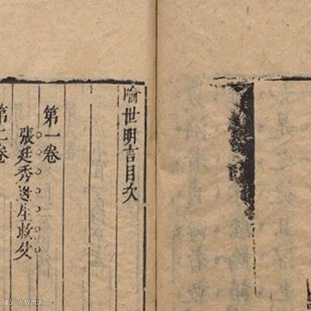 喻世明言目次
第一卷
張廷秀逃生救父
第二卷